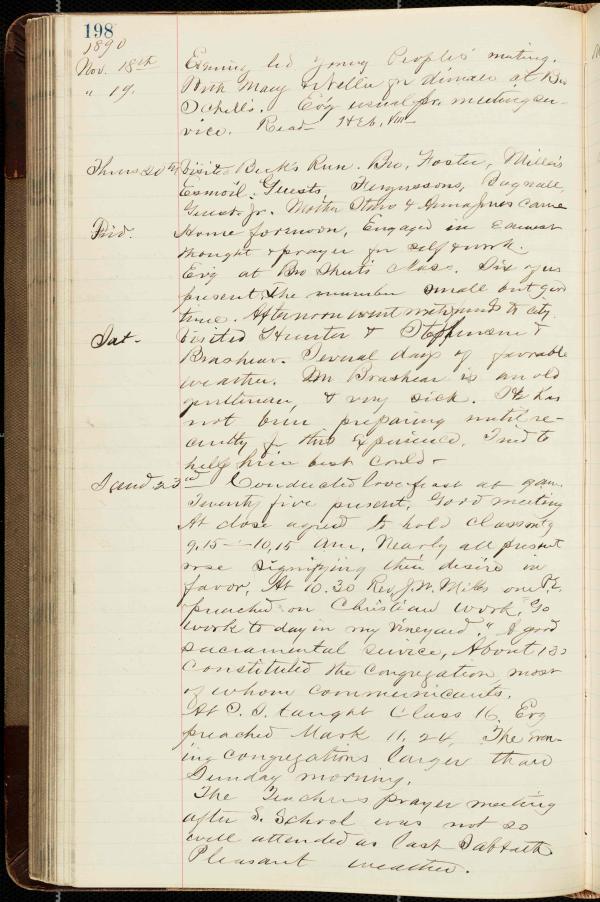 198
1890
Nov. 18th Evening led young Peoples' meeting.
" 19. With Mary & Nellie for dinner at Bro
Eve'g usual pr. meeting ser-
vice. Read Heb. VIII
Thurs 20th Visited Beck's Run. Bro. Foster, Miller's
Guests, Fergussons, Bagnall,
Guest Jr. Mother & Anna Jones came
Frid. Home forenoon, Engaged in earnest
thought & prayer for self & work.
Ev'g at Bro Class. Six of us
present. The number small but good
time. Afternoon went to city.
Sat. Visited Hunter & Stephenson &
Brashear. Several days of favorable
weather. Mr Brashear is an old
gentleman, & very sick. He has
not been preparing until re-
cently for this Experience. Tried to
help him best could.
Sand 23rd Conducted lovefeast at 9 am.
Twenty five present, Good meeting
At close agreed to hold Class mtg
9.15 - 10.15 Am. Nearly all present
rose signifying their desire in
favor. At 10.30 Rev. J. W. Miles our P.E.
preached on Christian work, "Go
work to day in my Vineyard." A good
sacramental service, About 130
Constituted the Congregation most
of whom communicants.
At C. S. taught Class 16. Evg
preached Mark 11. 24. The even-
ing congregations larger than
Sunday morning.
The Teachers prayer meeting
after S. School was not so
well attended as last Sabbath
Pleasant weather.